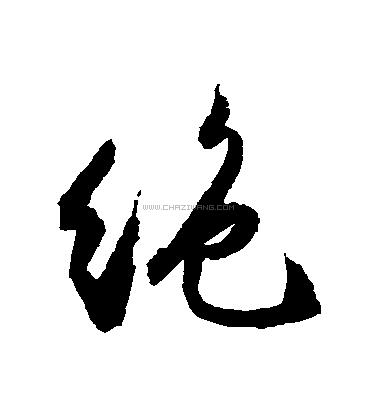 絶
WWW.CHAZIWANG.COM